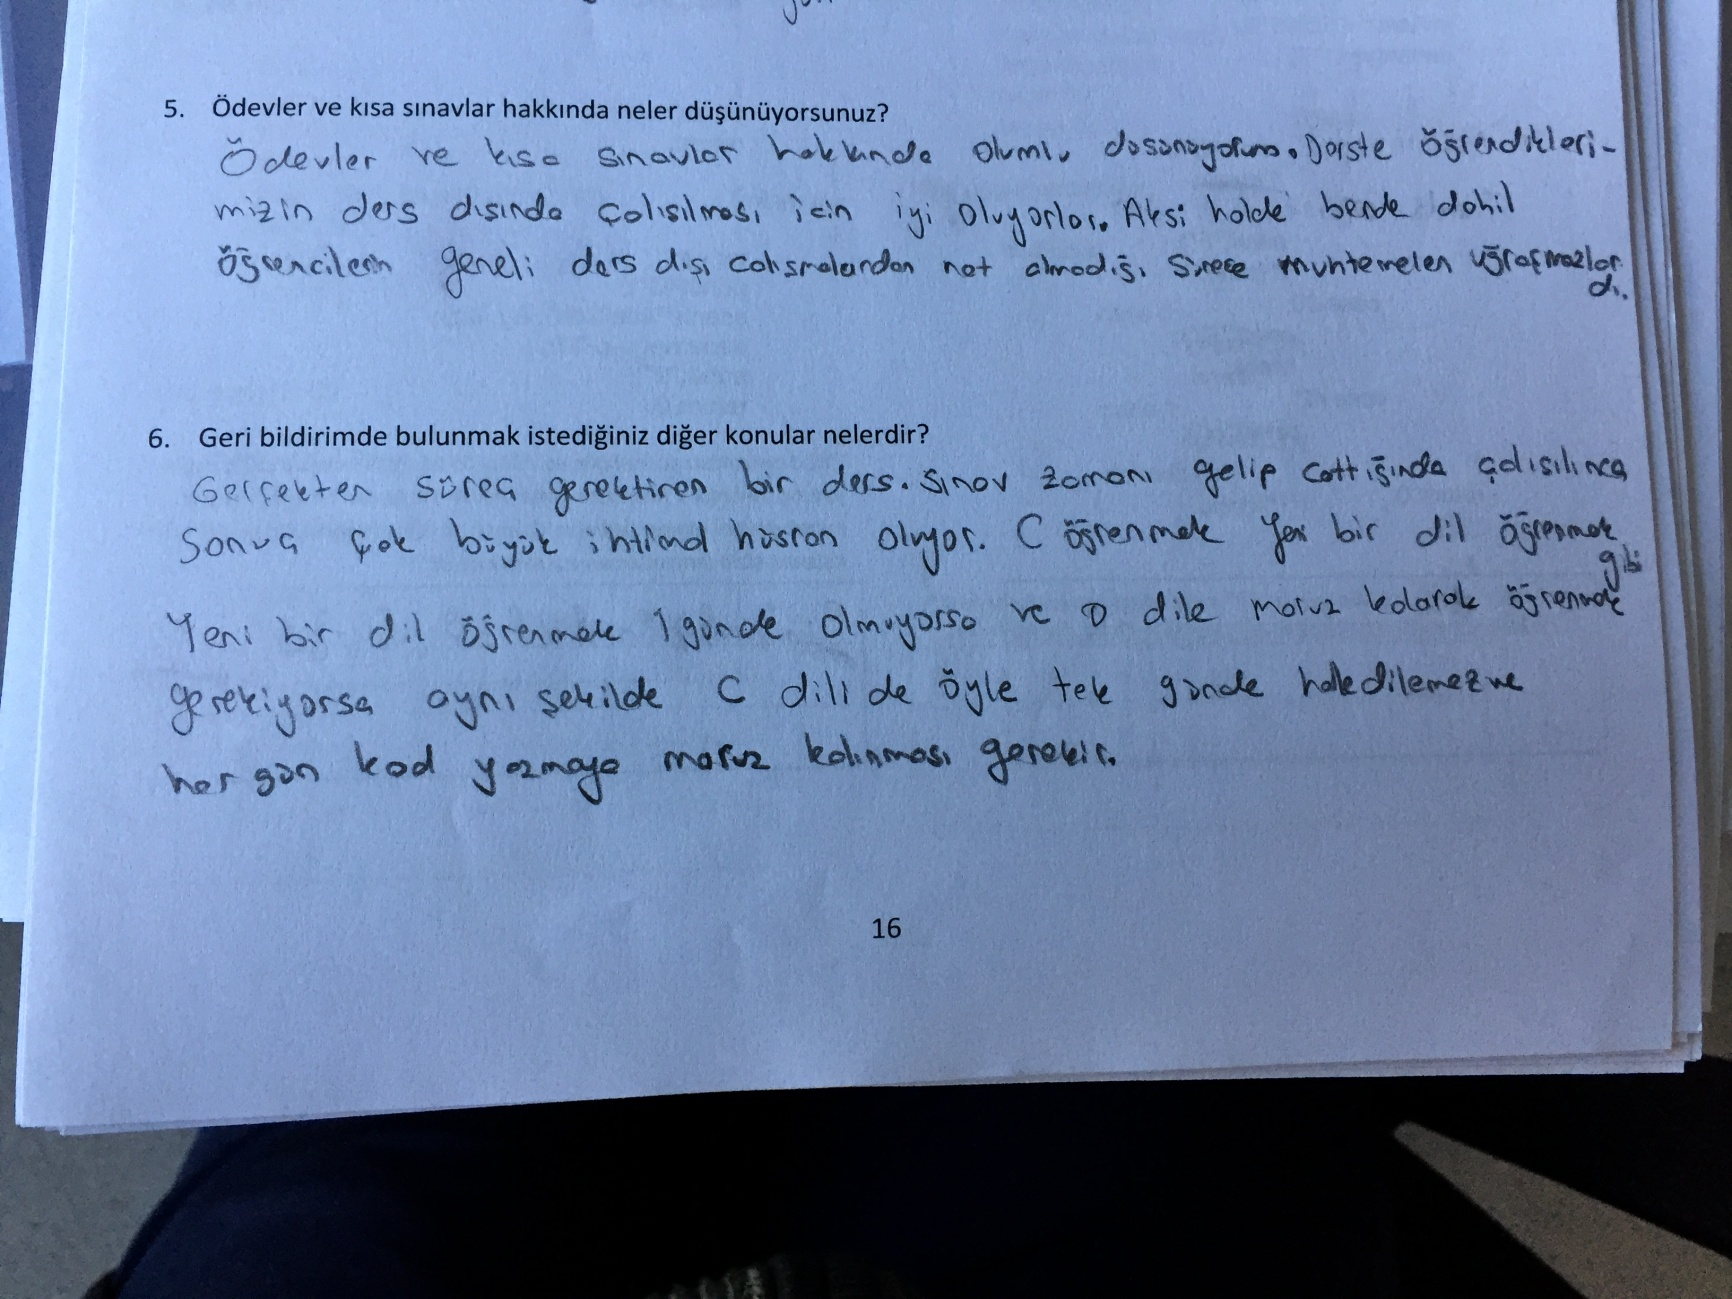 5. Ödevler ve kısa sınavlar hakkında neler düşünüyorsunuz?
Ödevler ve kısa sınavlar hakkında olumlu düşünüyorum. Derste öğrendikleri-
mizin ders dışında çalışılması için iyi oluyorlar. Aksi halde bende dahil
öğrencilerin geneli ders dışı calısmalardan not almadığı sürece muhtemelen uğraşmazlar
dı.
6. Geri bildirimde bulunmak istediğiniz diğer konular nelerdir?
Gerçekten süreç gerektiren bir ders. Sınav zamanı gelip cattığında çalışılınca
Sonuç çok büyük ihtimal hüsran oluyor. C öğrenmek yeni bir dil öğrenmek
gibi
Yeni bir dil öğrenmek 1 günde olmuyorsa ve o dile maruz kalarak öğrenmek
gerekiyorsa aynı şekilde C dili de öyle tek günde halledilemez ve
her gün kod yazmaya maruz kalınması gerekir.
16